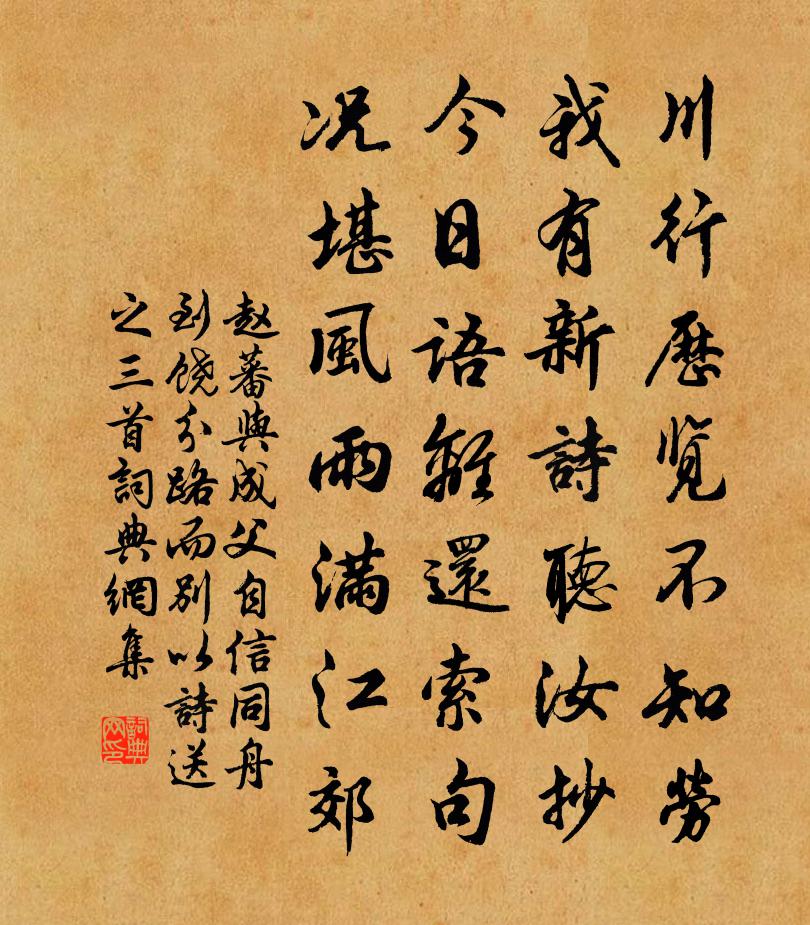 川行歷览不知勞
我有新詩聽汝抄
今日語離還索句
况堪風雨滿江郊
赵蕃與成父自信同舟
到饶分路而别以詩送
之三首詞典網集
詞典
网印